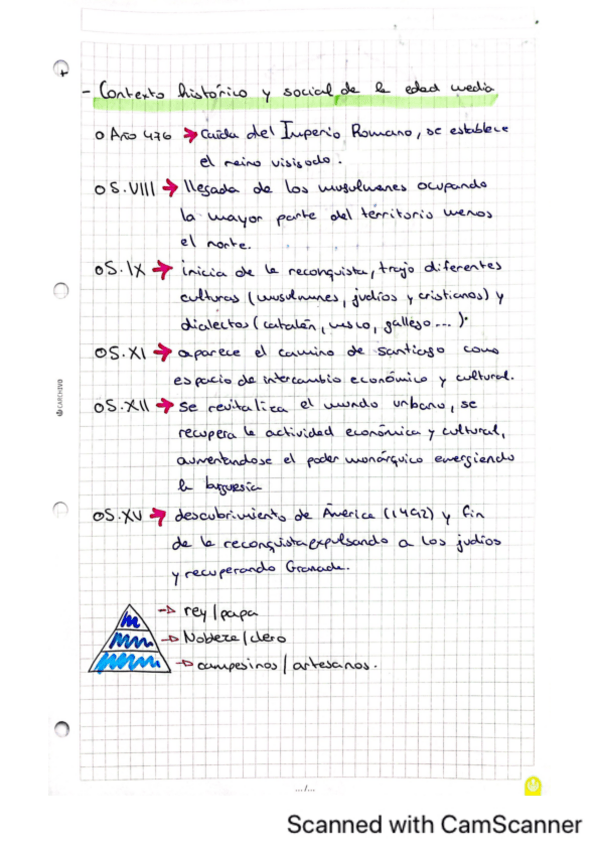 - Contexto histórico y social de la edad media
o Año 476 → Caída del Imperio Romano, se establece
el reino visigodo.
o S.VIII → llegada de los musulmanes ocupando
la mayor parte del territorio menos
el norte.
o S.IX → inicia de la reconquista, trajo diferentes
culturas (musulmanes, judíos y cristianos) y
dialectos (catalán, vasco, gallego...).
o S.XI → aparece el camino de santiago como
espacio de intercambio económico y cultural.
o S.XII → Se revitaliza el mundo urbano, se
recupera la actividad económica y cultural,
aumentándose el poder monárquico emergiendo
la burguesía
o S.XV → descubrimiento de América (1492) y fin
de la reconquista expulsando a los judíos
y recuperando Granada.
→ rey/papa
→ Nobleza/clero
→ campesinos/artesanos.
CARCHIVO
.../...
Scanned with CamScanner